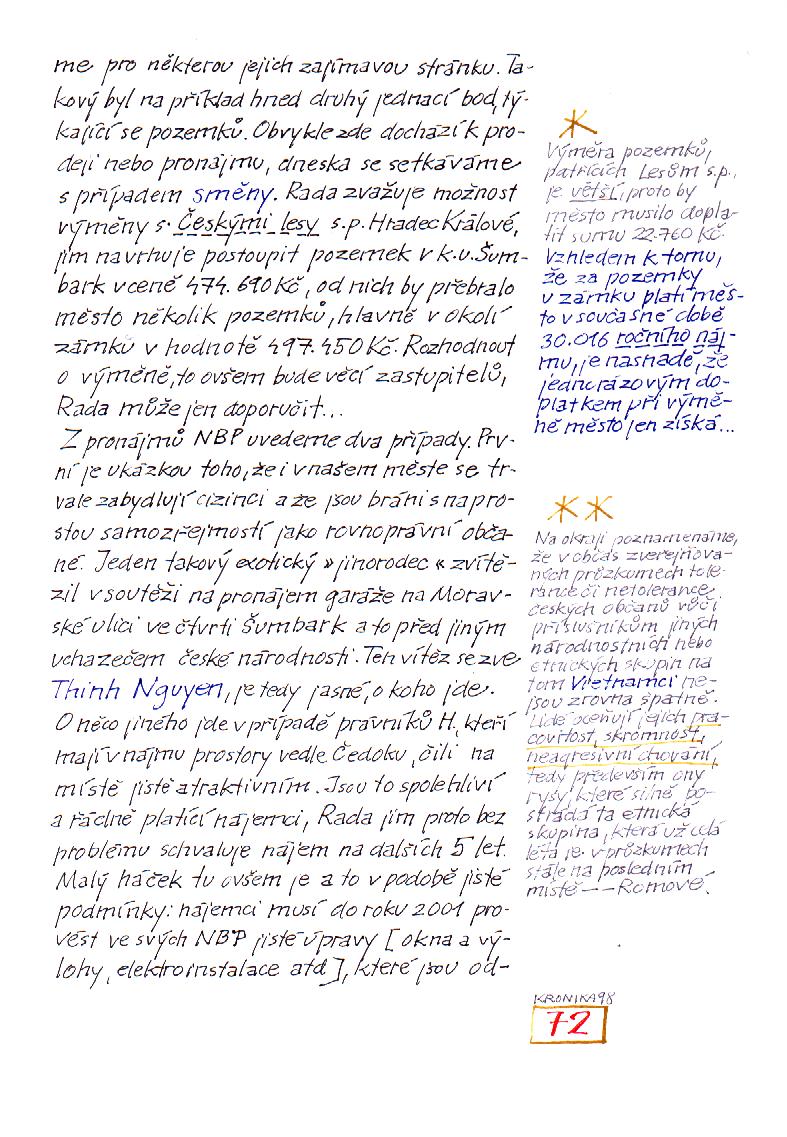 me pro některou jejich zajímavou stránku. Ta-
kový byl na příklad hned druhý jednací bod, tý-
kající se pozemků. Obvykle zde dochází k pro-
deji nebo pronájmu, dneska se setkáváme
s případem směny. Rada zvažuje možnost
výměny s Českými lesy s.p. Hradec Králové,
jim navrhuje postoupit pozemek v k.ú. Šum-
bark v ceně 474.690 Kč, od nich by přebralo
město několik pozemků, hlavně v okolí
zámku v hodnotě 497.450 Kč. Rozhodnout
o výměně, to ovšem bude věcí zastupitelů,
Rada může jen doporučit...
Z pronájmů NBP uvedeme dva případy. Prv-
ní je ukázkou toho, že i v našem městě se tr-
vale zabydlují cizinci a že jsou bráni s napro-
stou samozřejmostí jako rovnoprávní obča-
né. Jeden takový exotický » jinorodec « zvítě-
zil v soutěži na pronájem garáže na Morav-
ské ulici ve čtvrti Šumbark a to před jiným
uchazečem české národnosti. Ten vítěz se zve
Thinh Nguyen, je tedy jasné, o koho jde.
O něco jiného jde v případě právníků H, kteří
mají v nájmu prostory vedle Čedoku, čili na
místě jistě atraktivním. Jsou to spolehliví
a řádně platící nájemci, Rada jim proto bez
problému schvaluje nájem na dalších 5 let.
Malý háček tu ovšem je a to v podobě jisté
podmínky: nájemci musí do roku 2001 pro-
vést ve svých NBP jisté úpravy [okna a vý-
lohy, elektroinstalace atd], které jsou od-
*
Výměra pozemků,
patřících Lesům s.p.,
je větší, proto by
město musilo dopla-
tit sumu 22.760 Kč.
Vzhledem k tomu,
že za pozemky
u zámku platí měs-
to v současné době
30.016 ročního náj-
mu, je nasnadě, že
jednorázovým do-
platkem při výmě-
ně město jen získá...
* *
Na okraji poznamenáme,
že v občas zveřejňova-
ných průzkumech tole-
rance či netolerance
českých občanů vůči
příslušníkům jiných
národnostních nebo
etnických skupin na
tom Vietnamci ne-
jsou zrovna špatně.
Lidé oceňují jejich pra-
covitost, skromnost,
neagresivní chování,
tedy především ony
rysy, které silně po-
strádá ta etnická
skupina, která už celá
léta je v průzkumech
stále na posledním
místě — — Romové.
KRONIKA 98
72